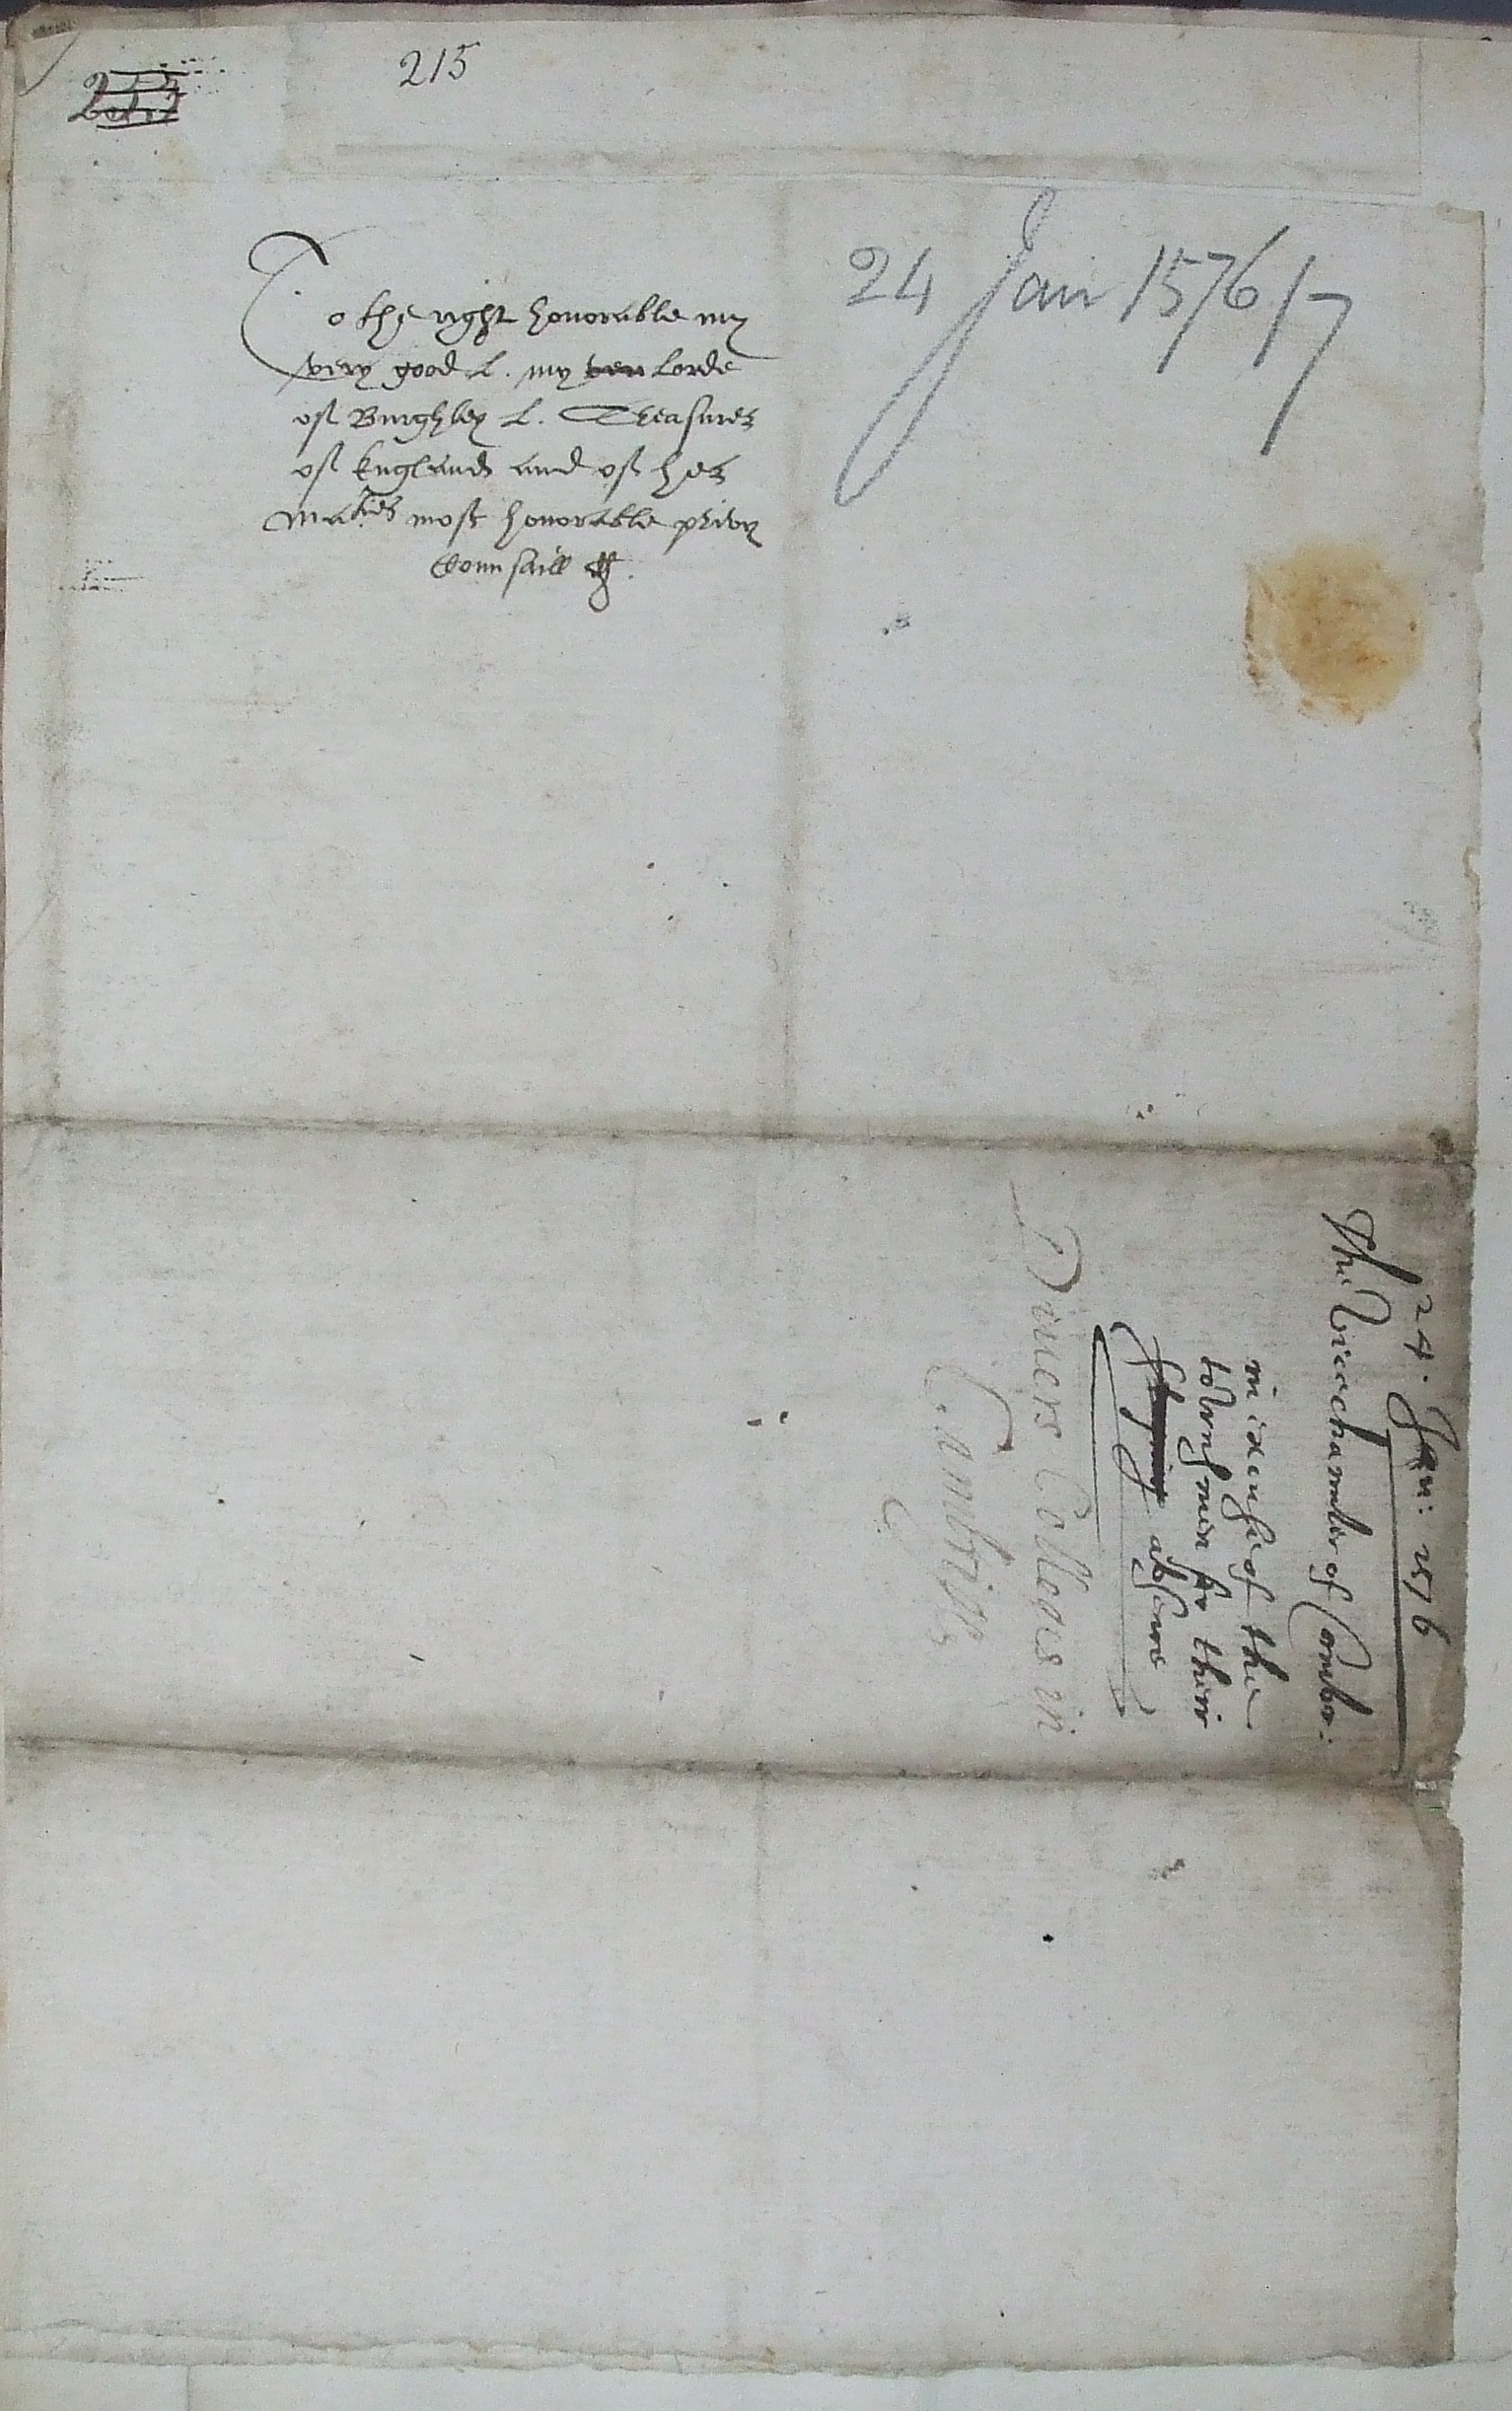 215
24 Jan 1576/7
To the right honorable my
very good L. my Lorde
off Burghley L. Treasurer
off Englande and off her
Maties most honorable privy
Counsaill &c.
24. Jan: 1576
The Vicechancelor of Cambr:
in of the
townsmen for their
absence
Divers Colleges in
Cambridg